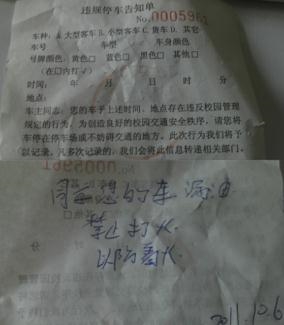 违规停车告知单
No.0005961
车种：A.大型客车 B.小型客车 C.货车 D.其它
车号 车型 车身颜色
号牌颜色：黄色□ 蓝色□ 黑色□ 其他□
（在□内打√）
时间： 年 月 日 时 分
地点：
车主同志：您的车于上述时间、地点存在违反校园管理
规定的行为，为创造良好的校园交通安全秩序，请您将
车停在停车场或不妨碍交通的地方。此次行为我们将予
以记录，凡多次记录的，我们会将此信息转递相关部门。
0005961
的车漏油
禁止打火
以防着火
2011.10.6